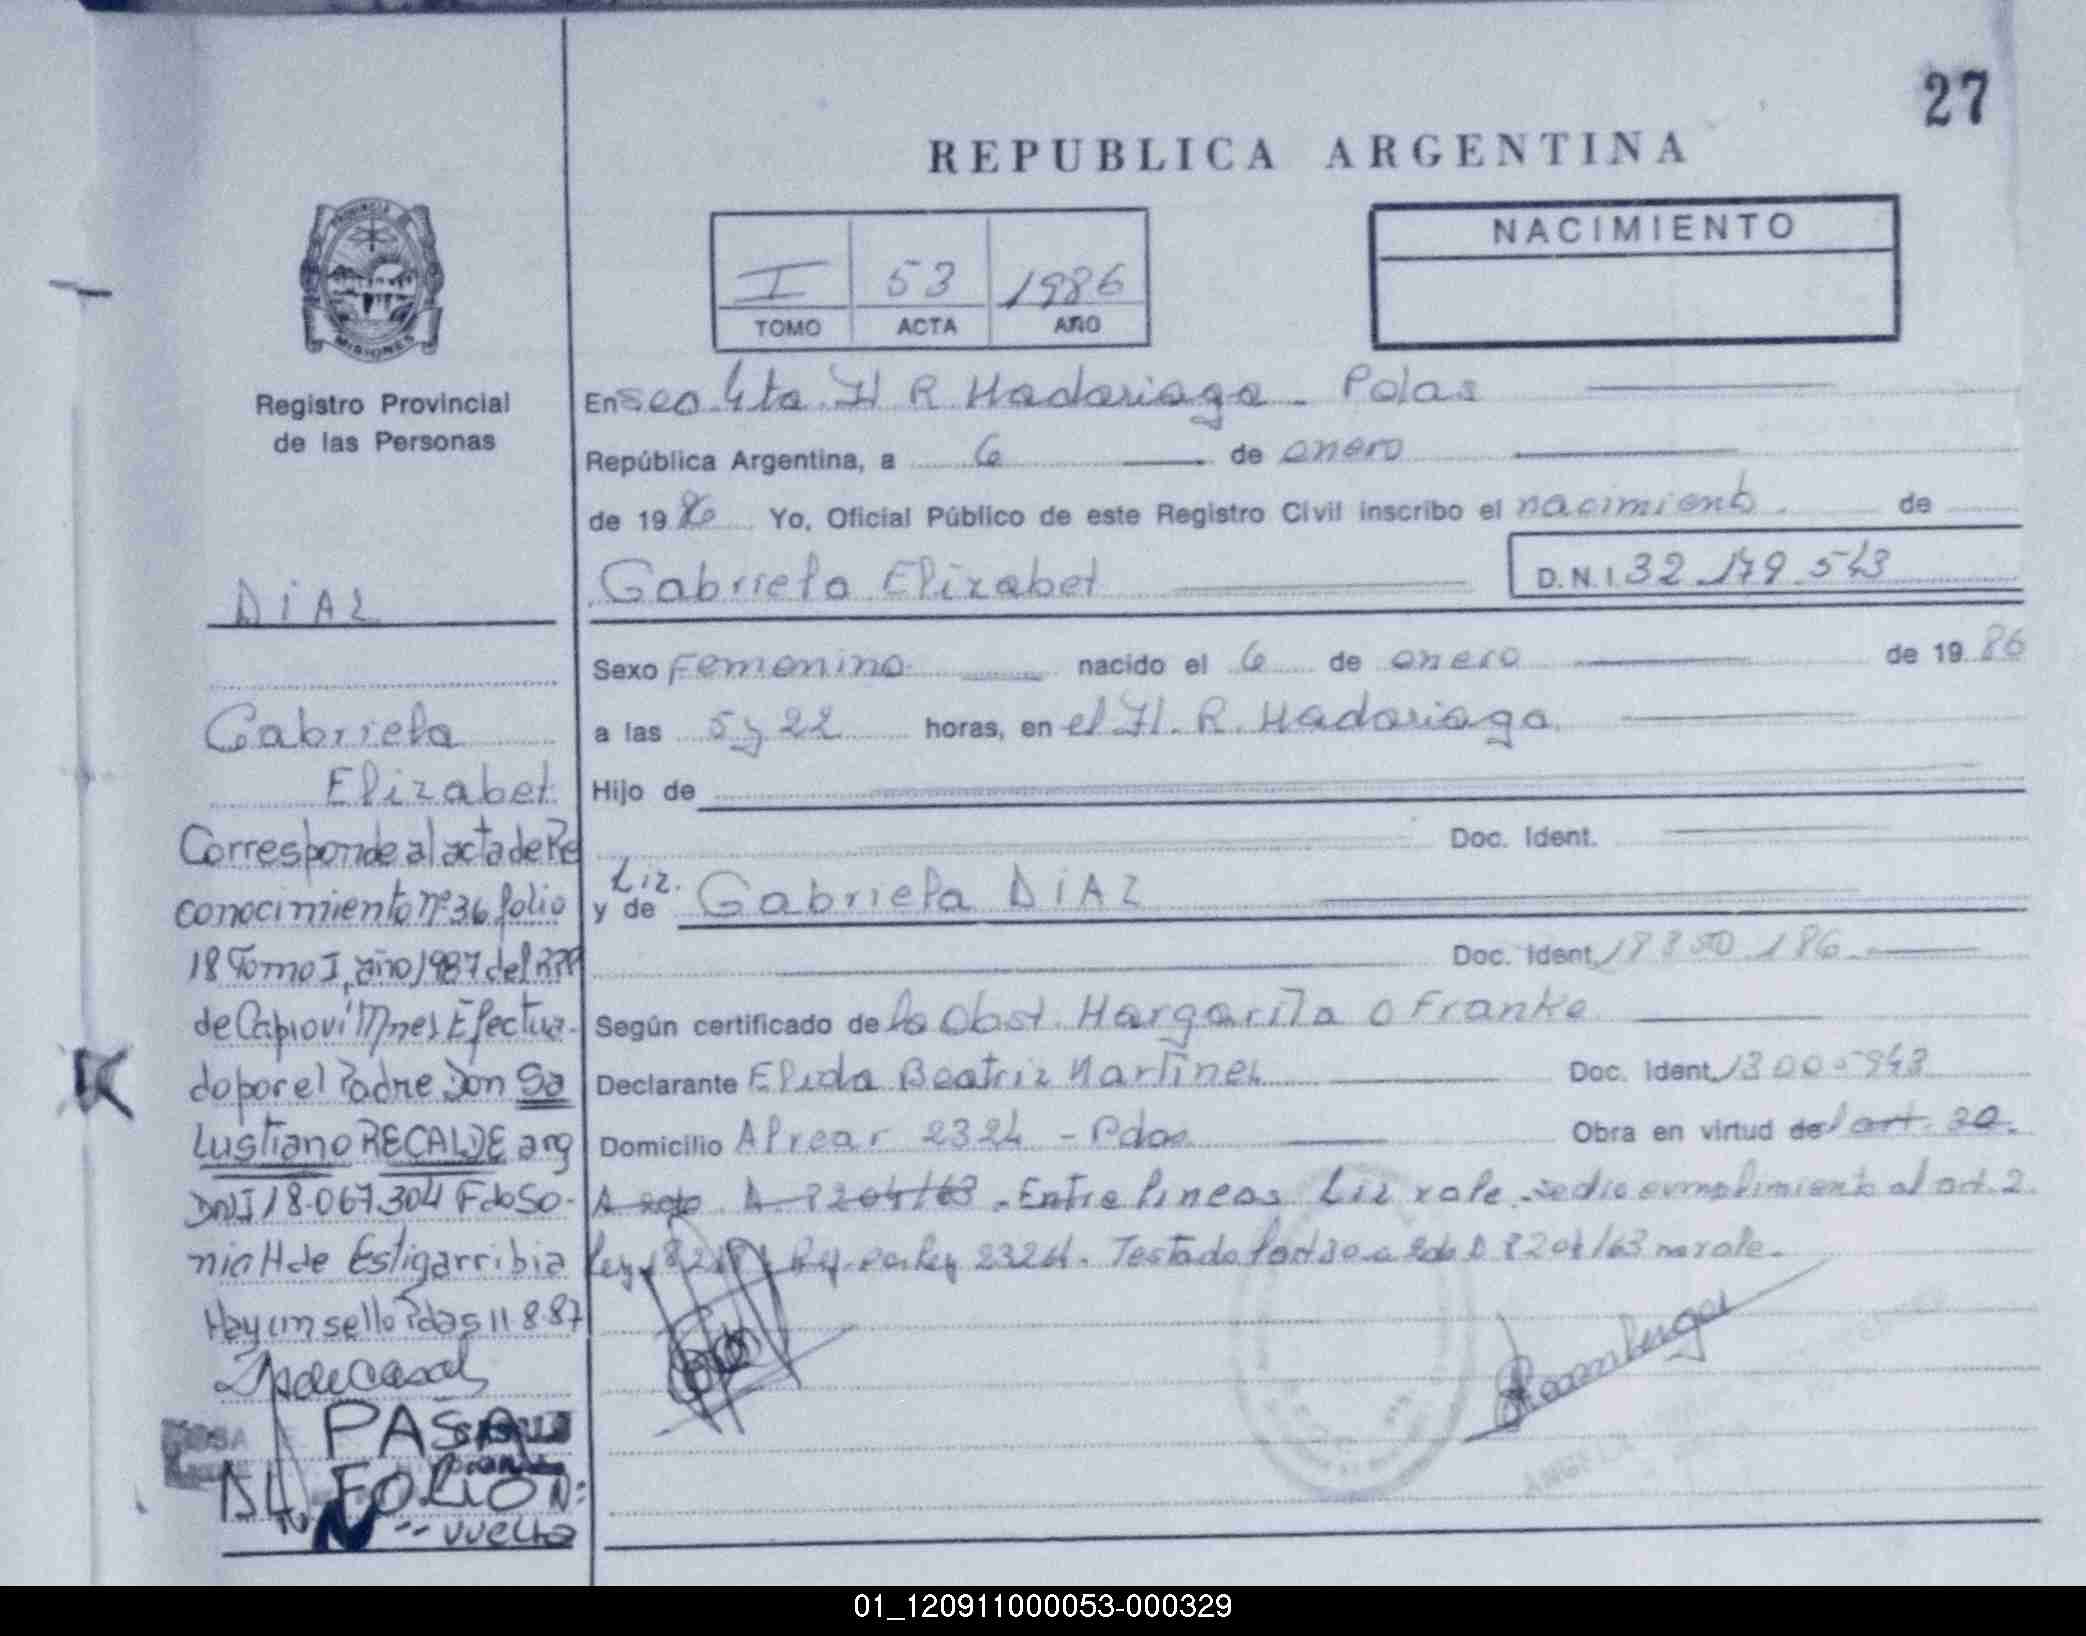 27
REPUBLICA ARGENTINA
NACIMIENTO
I 53 1986
TOMO ACTA AÑO
PROVINCIA DE
MISIONES
Registro Provincial
de las Personas
DiAZ
Gabriela
Elizabet
Corresponde al acta de Re
conocimiento nº 36 folio
18 Tomo I, año 1987 del RPP
de Capioví Mnes Efectua-
do por el Padre Don Sa
Lustiano RECALDE arg
DNI 18.067.304 Fdo So-
nia H de Estigarribia
Hay un sello Pdas 11 8 87
PASA
AL FOLIO N:
-- vuelta
En Sec 4ta H R Madariaga - Pdas
República Argentina, a 6 de enero
de 1986 Yo, Oficial Público de este Registro Civil inscribo el nacimiento de
Gabriela Elizabet D.N.I. 32.179.543
Sexo Femenino nacido el 6 de enero de 1986
a las 5 y 22 horas, en el H. R. Madariaga
Hijo de
Doc. Ident.
Liz.
y de Gabriela DiAZ
Doc. Ident. 18350.186
Según certificado de la Obst. Margarita O Franke
Declarante Elida Beatriz Martinez Doc. Ident. 13005943
Domicilio Alvear 2324 - Pdas Obra en virtud del art. 30
A D 8204/63 - Entre lineas Liz vale - se dio cumplimiento al art. 2
Ley por Ley 23264. Testado D 8204/63 no vale.
01_120911000053-000329